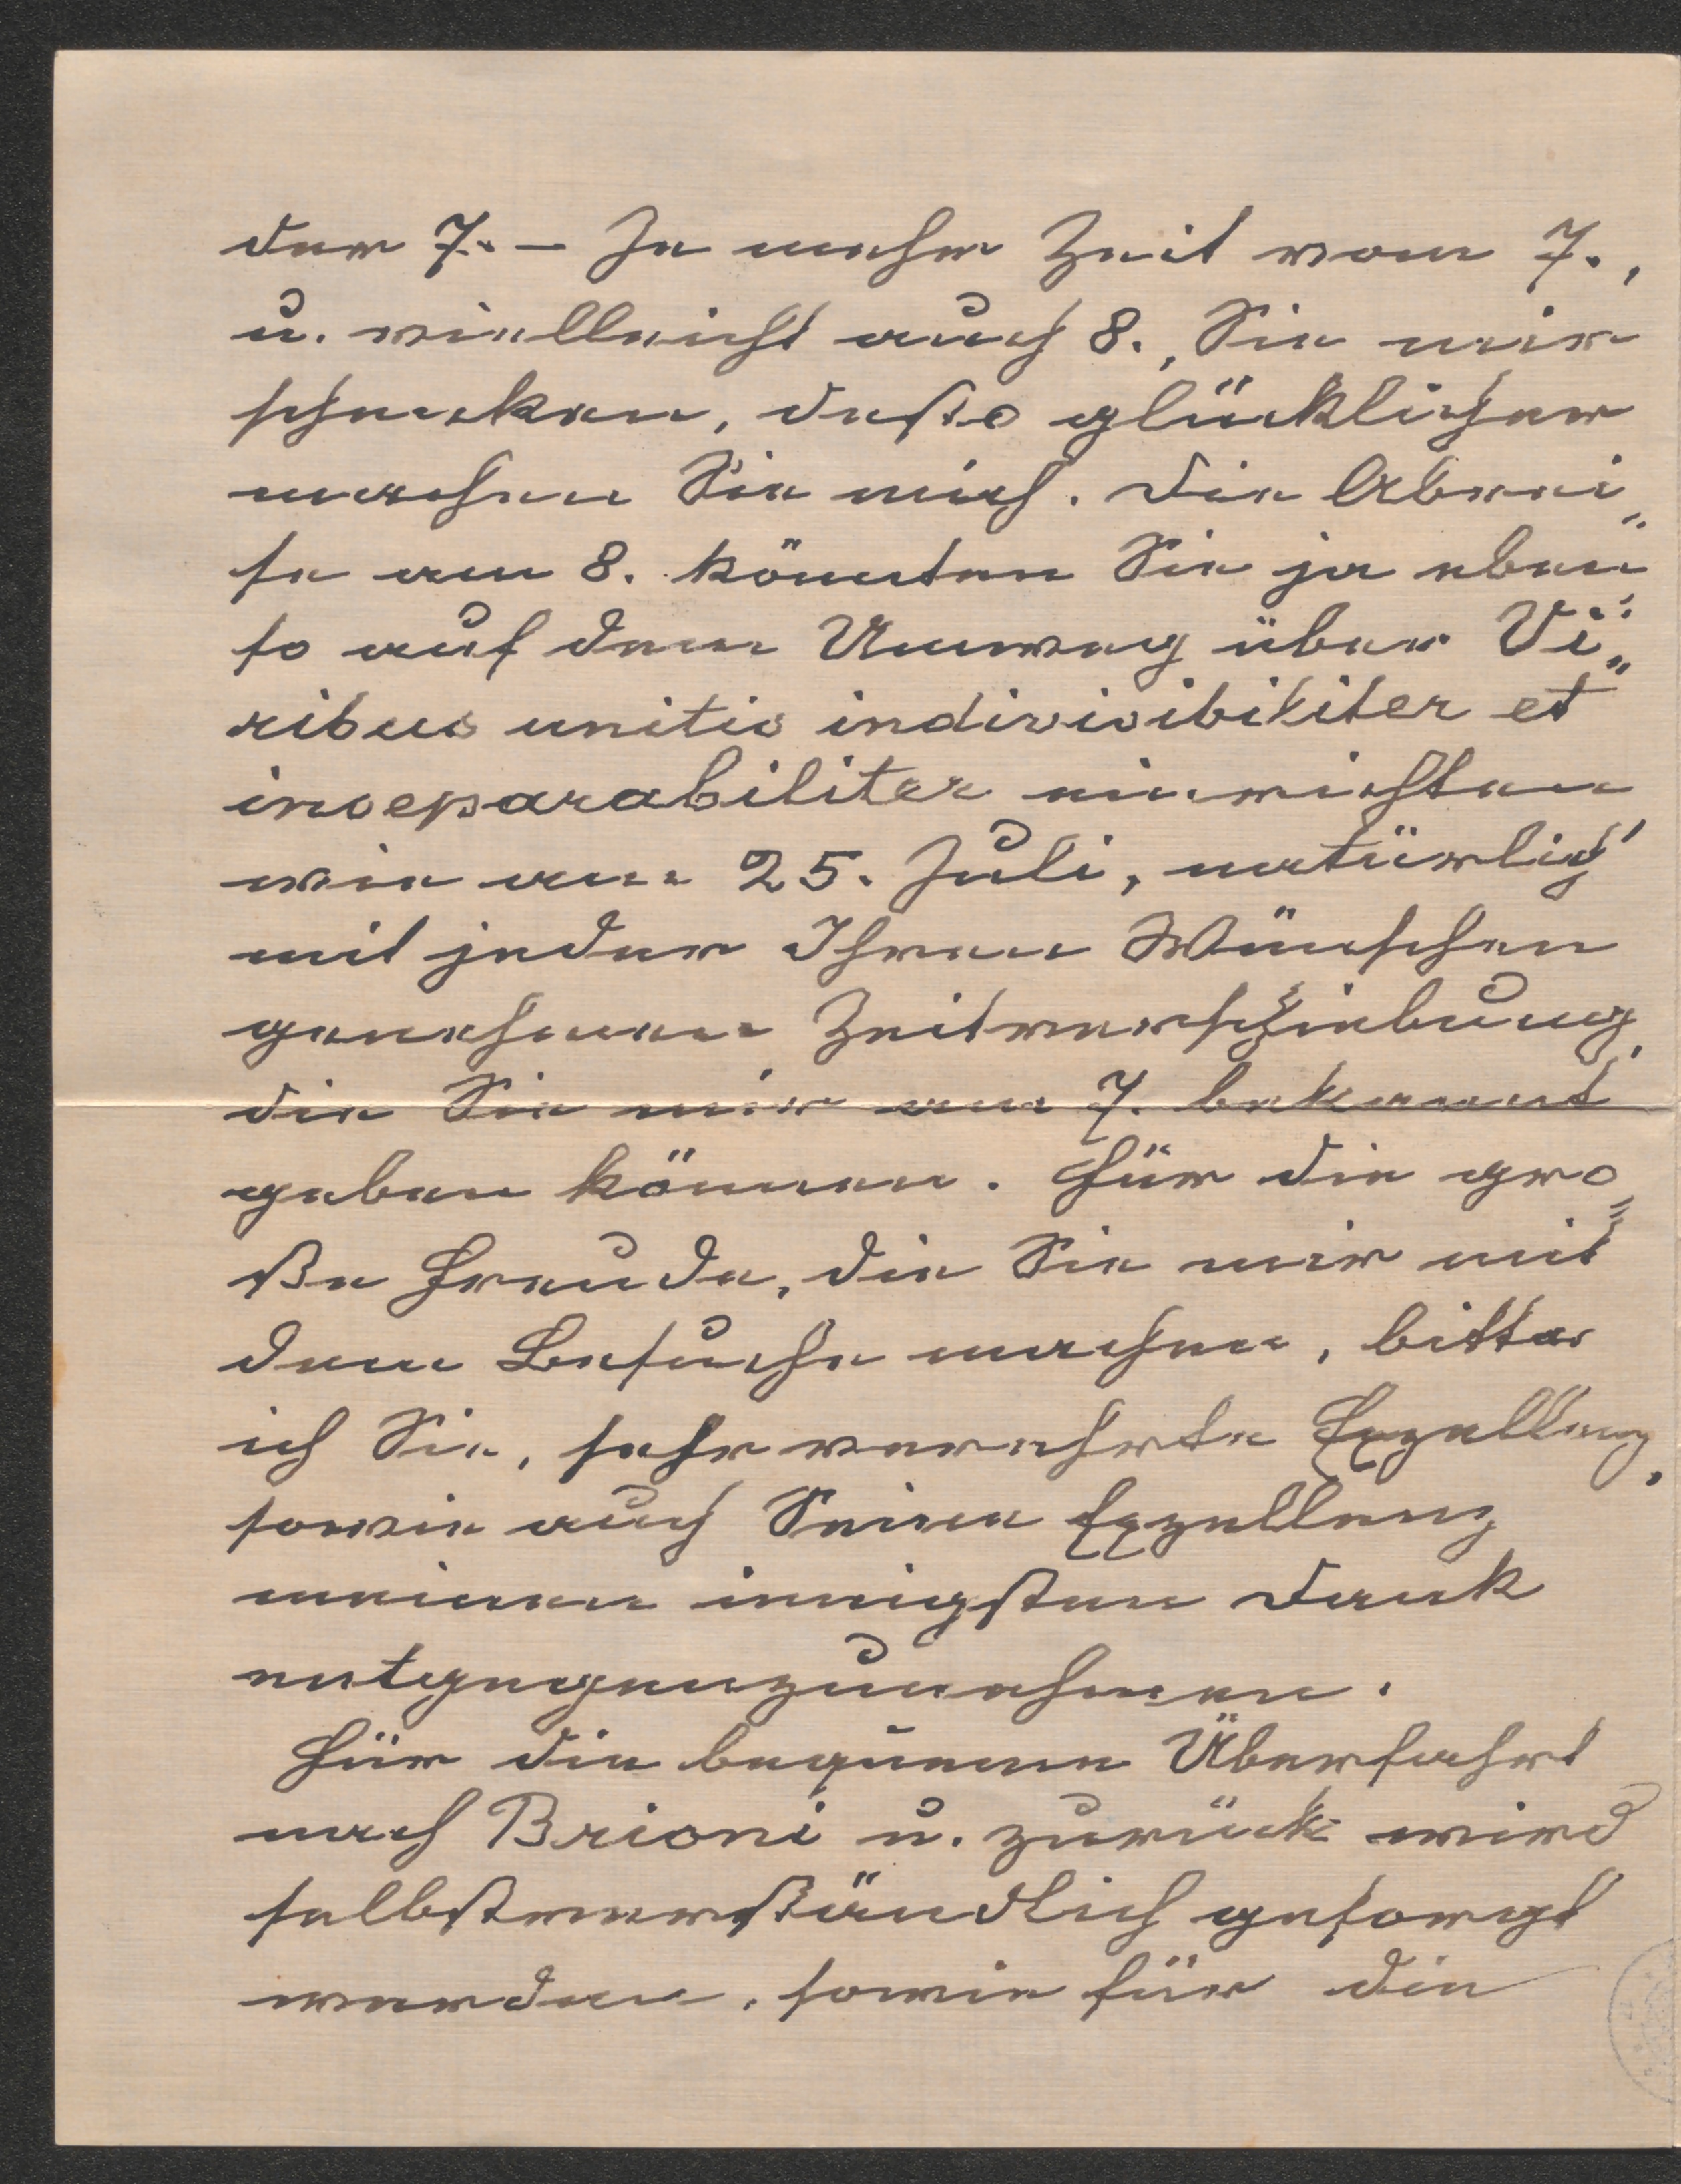 der 7. – Je mehr Zeit vom 7.,
u. vielleicht auch 8., Sie mir
schenken, desto glücklicher
machen Sie mich. Die Abrei„
se am 8. könnten Sie ja eben„
so auf dem Umweg über Vi„
ribus unitis indivisibiliter et
inseparabiliter einrichten
wie am 25. Juli, natürlich
mit jeder Ihren Wünschen
genehmen Zeitverschiebung,
die Sie mir am 7. bekannt
geben können. Für die gro„
ße Freude, die Sie mir mit
dem Besuche machen, bitte
ich Sie, sehr verehrte Exzellenz,
sowie auch Seine Exzellenz
meinen innigsten Dank
entgegenzunehmen.
Für die bequeme Überfahrt
nach Brioni u. zurück wird
selbstverständlich gesorgt
werden, sowie für die